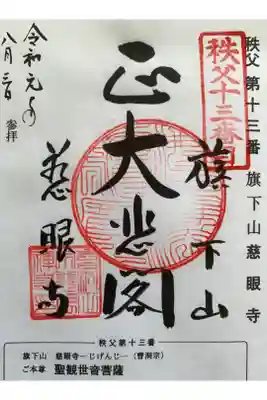 秩父第十三番 旗下山 慈眼寺
秩父十三番
旗下山
正大悲閣
慈眼寺
令和元年
八月三日
参拝
秩父第十三番
旗下山 慈眼寺−じげんじ−(曹洞宗)
ご本尊 聖観世音菩薩